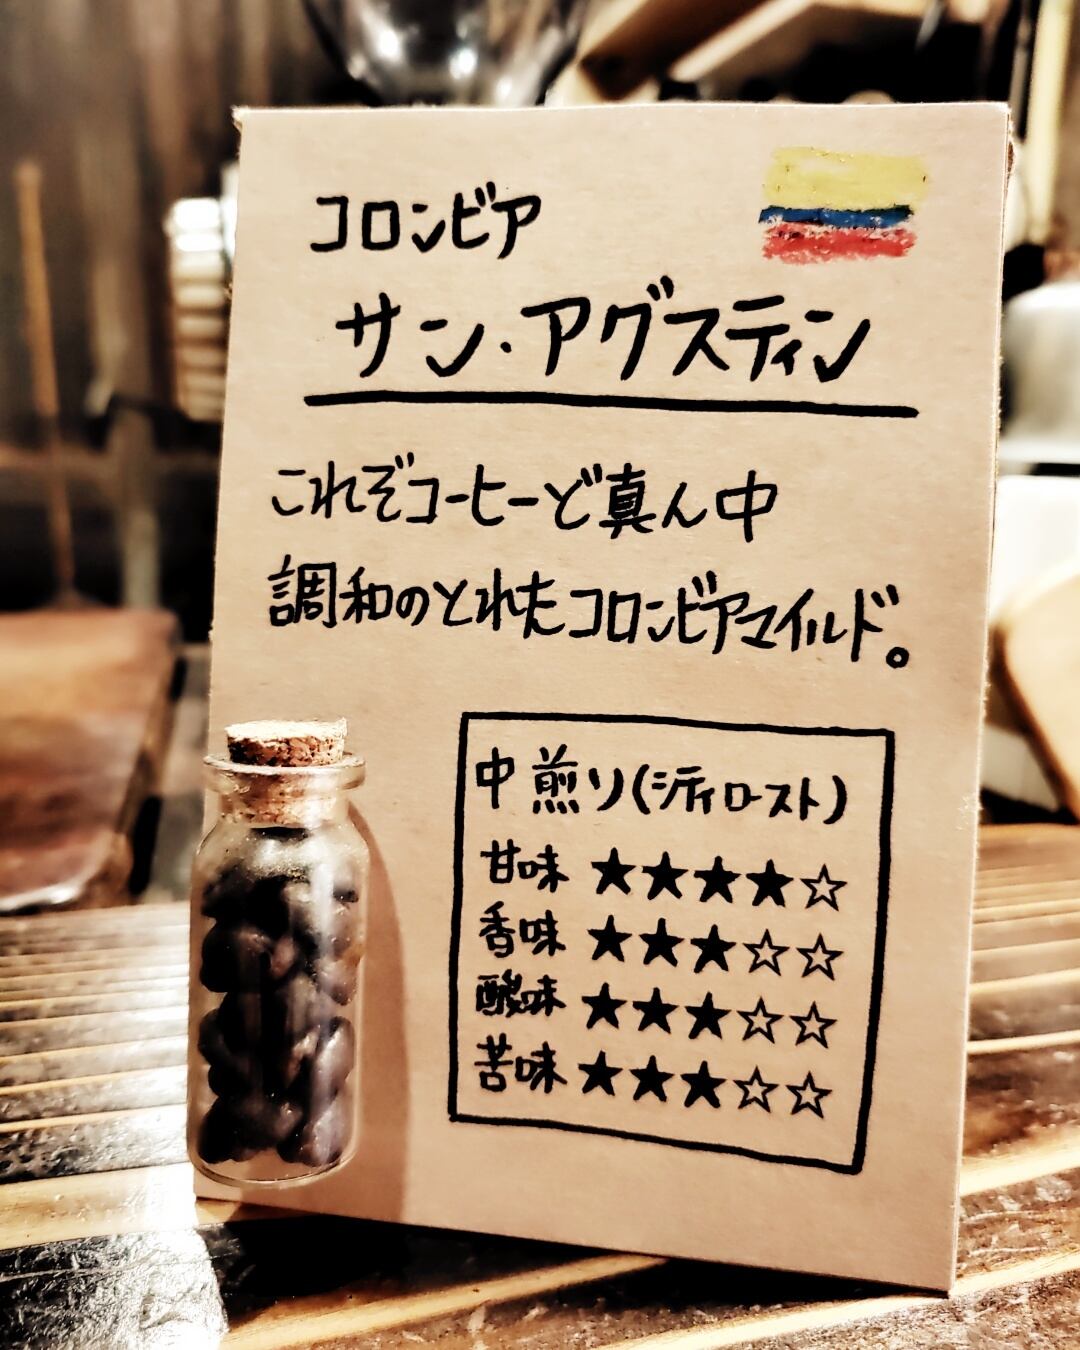 コロンビア
サン・アグスティン
これぞコーヒーど真ん中
調和のとれたコロンビアマイルド。
中煎り(シティロースト)
甘味 ★★★★☆
香味 ★★★☆☆
酸味 ★★★☆☆
苦味 ★★★☆☆